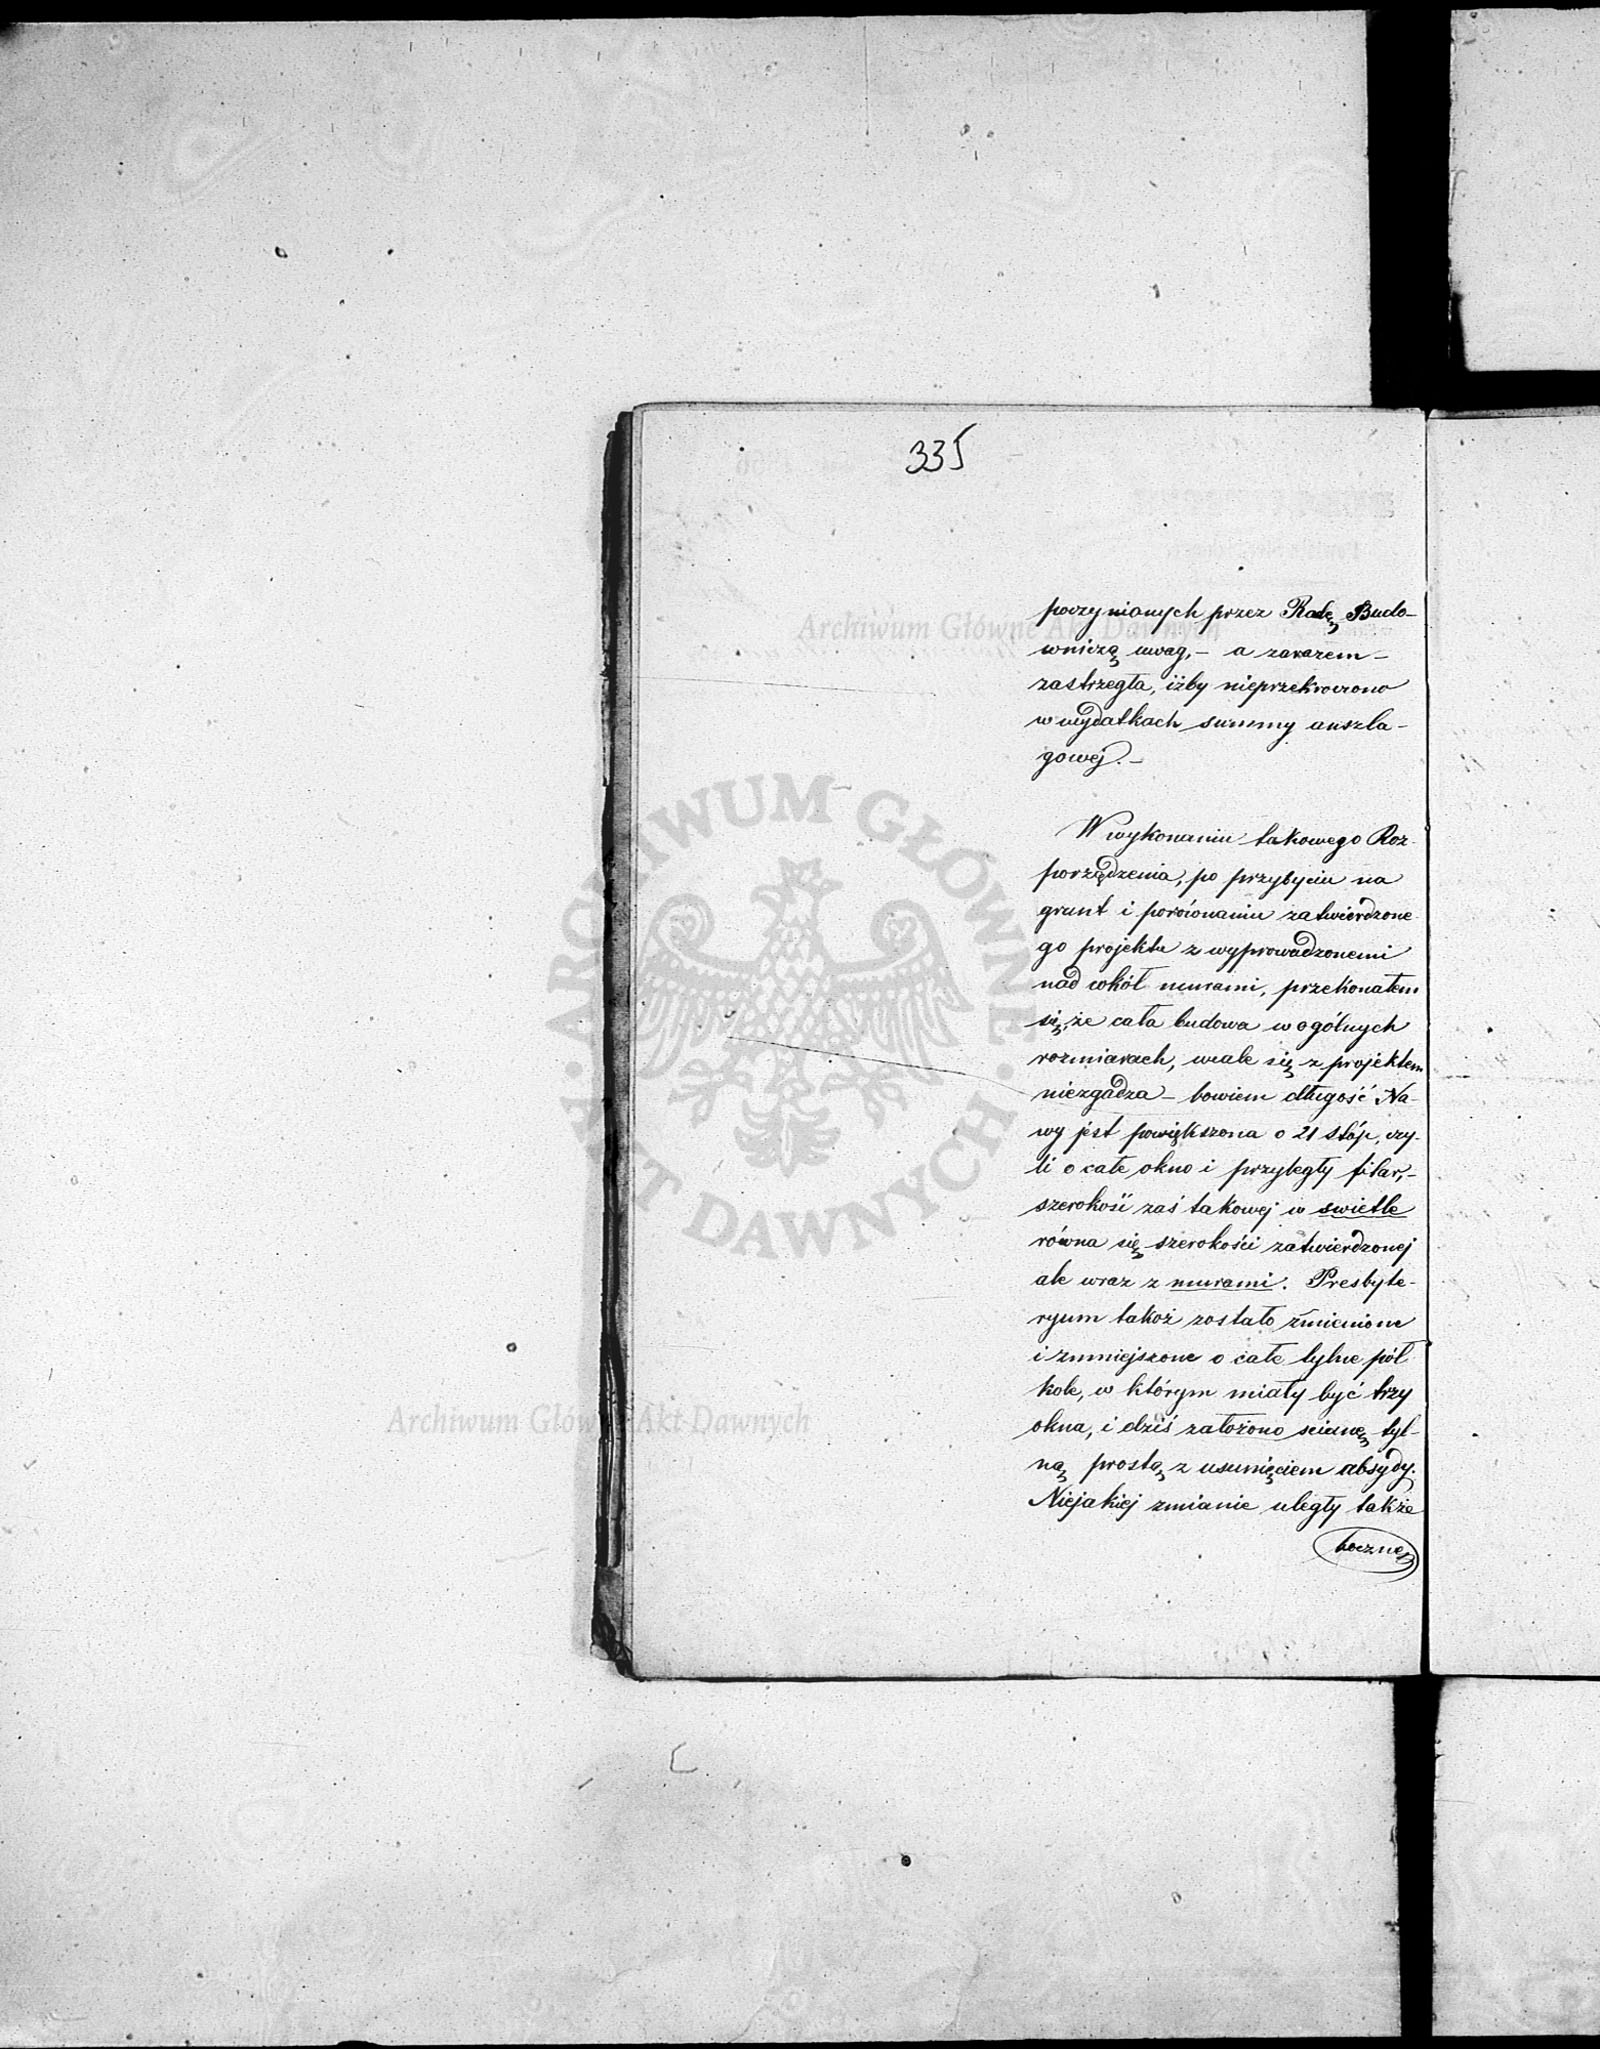 335
poczynionych przez Radę Budo-
wniczą uwag, – a zarazem –
zastrzegła, iżby nieprzekroczono
w wydatkach summy anszla-
gowej. –
W wykonaniu takowego Roz-
porządzenia, po przybyciu na
grunt i porównaniu zatwierdzone-
go projektu z wyprowadzonemi
nad cokół murami, przekonałem
się, że cała budowa w ogólnych
rozmiarach, wcale się z projektem
niezgadza – bowiem długość Na-
wy jest powiększona o 21 stóp, czy-
li o całe okno i przyległy filar, –
szerokość zaś takowej w swietle
równa się szerokości zatwierdzonej
ale wraz z murami. Presbyte-
ryum takoż zostało zmienione
i zmniejszone o całe tylne pół
kole, w którym miały być trzy
okna, i dziś założono scianę tyl-
ną prostą z usunięciem absydy.
Niejakiej zmianie uległy także
boczne
Archiwum Główne Akt Dawnych
ARCHIWUM GŁÓWNE · AKT DAWNYCH ·
Archiwum Główne Akt Dawnych